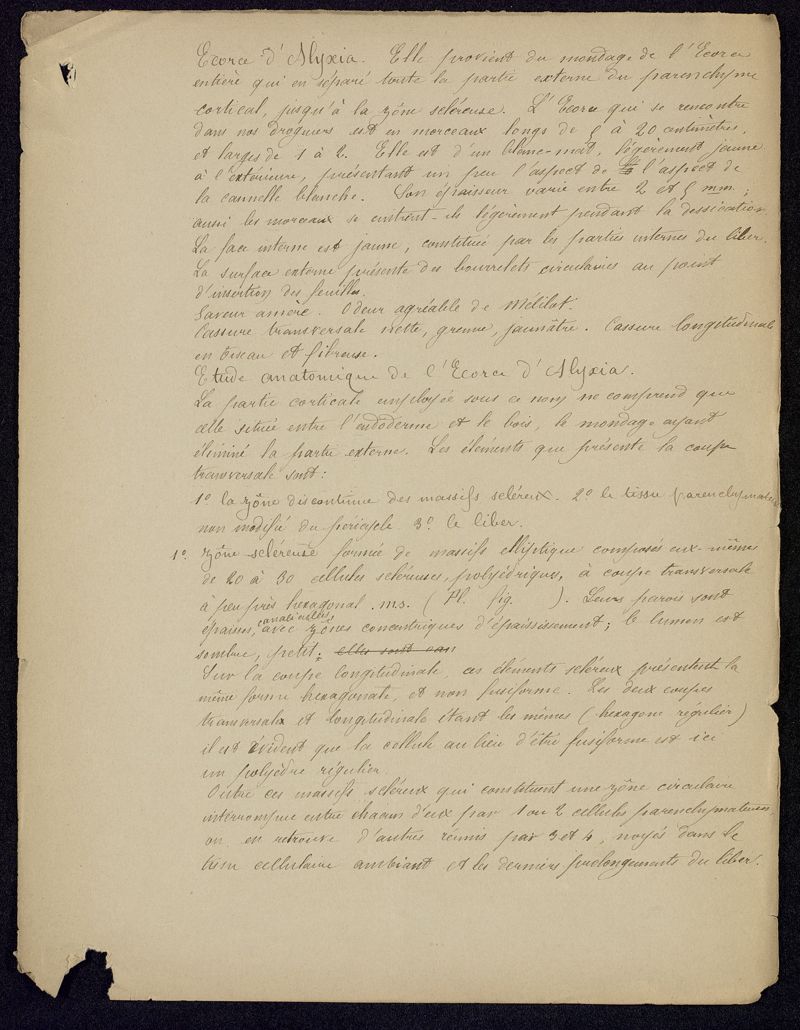 Ecorce d'Alyxia. Elle provient du mondage de l'Ecorce
entière qui en séparé toute la partie externe du parenchyme
cortical, jusqu'à la zône scléreuse. L'Ecorce qui se rencontre
dans nos droguiers est en morceaux longs de 5 à 20 centimètres,
et larges de 1 à 2. Elle est d'un blanc-mat, légèrement jaune
à l'extérieure, présentant un peu l'aspect de l'aspect de
la cannelle blanche. Son épaisseur varie entre 2 et 5 mm;
aussi les morceaux se cintrent-ils légèrement pendant la dessication.
La face interne est jaune, constituée par les parties internes du liber.
La surface externe présente des bourrelets circulaires au point
d'insertion des feuilles.
Saveur amère. Odeur agréable de Mélilot.
Cassure transversale nette, grenue, jaunâtre. Cassure longitudinale
en biseau et fibreuse.
Etude anatomique de l'Ecorce d'Alyxia.
La partie corticale employée sous ce nom ne comprend que
celle située entre l'endoderme et le bois, le mondage ayant
éliminé la partie externe. Les éléments que présente la coupe
transversale sont:
1º la zône discontinue des massifs scléreux. 2º le tissu parenchymateux
non modifié du péricycle 3º le liber.
1º. Zône scléreuse formée de massifs elliptique composés eux-mêmes
de 20 à 30 cellules scléreuses, polyédriques, à coupe transversale
à peu près hexagonal. m.s. ( Pl. fig. ). Leurs parois sont
épaisses, canaliculées, avec zônes concentriques d'épaississement; le lumen est
sombre, petit; elles sont can
Sur la coupe longitudinale, ces éléments scléreux présentent la
même forme hexagonale, et non fusiforme. Les deux coupes
transversale et longitudinale étant les mêmes (hexagone régulier)
il est évident que la cellule au lieu d'être fusiforme est ici
un polyèdre régulier.
Outre ces massifs scléreux qui constituent une zône circulaire
interrompue entre chacun d'eux par 1 ou 2 cellules parenchymateuses,
on en retrouve d'autres réunis par 3 et 4, noyés dans le
tissu cellulaire ambiant et les derniers prolongements du liber.